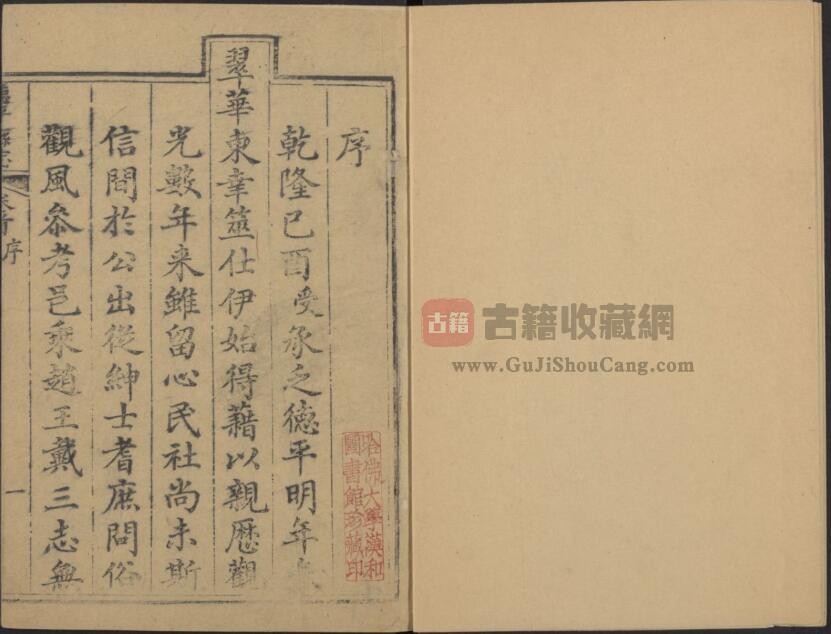 序
乾隆己酉受承乏德平明年
翠華東幸筮仕伊始得藉以親歷觀
光數年来雖留心民社尚未斯
信間於公出從紳士耆庶問俗
觀風叅考邑乘趙王戴三志無
序
一
哈佛大學漢和
圖書館珍藏印
古籍
古籍收藏網
www.GuJiShouCang.com